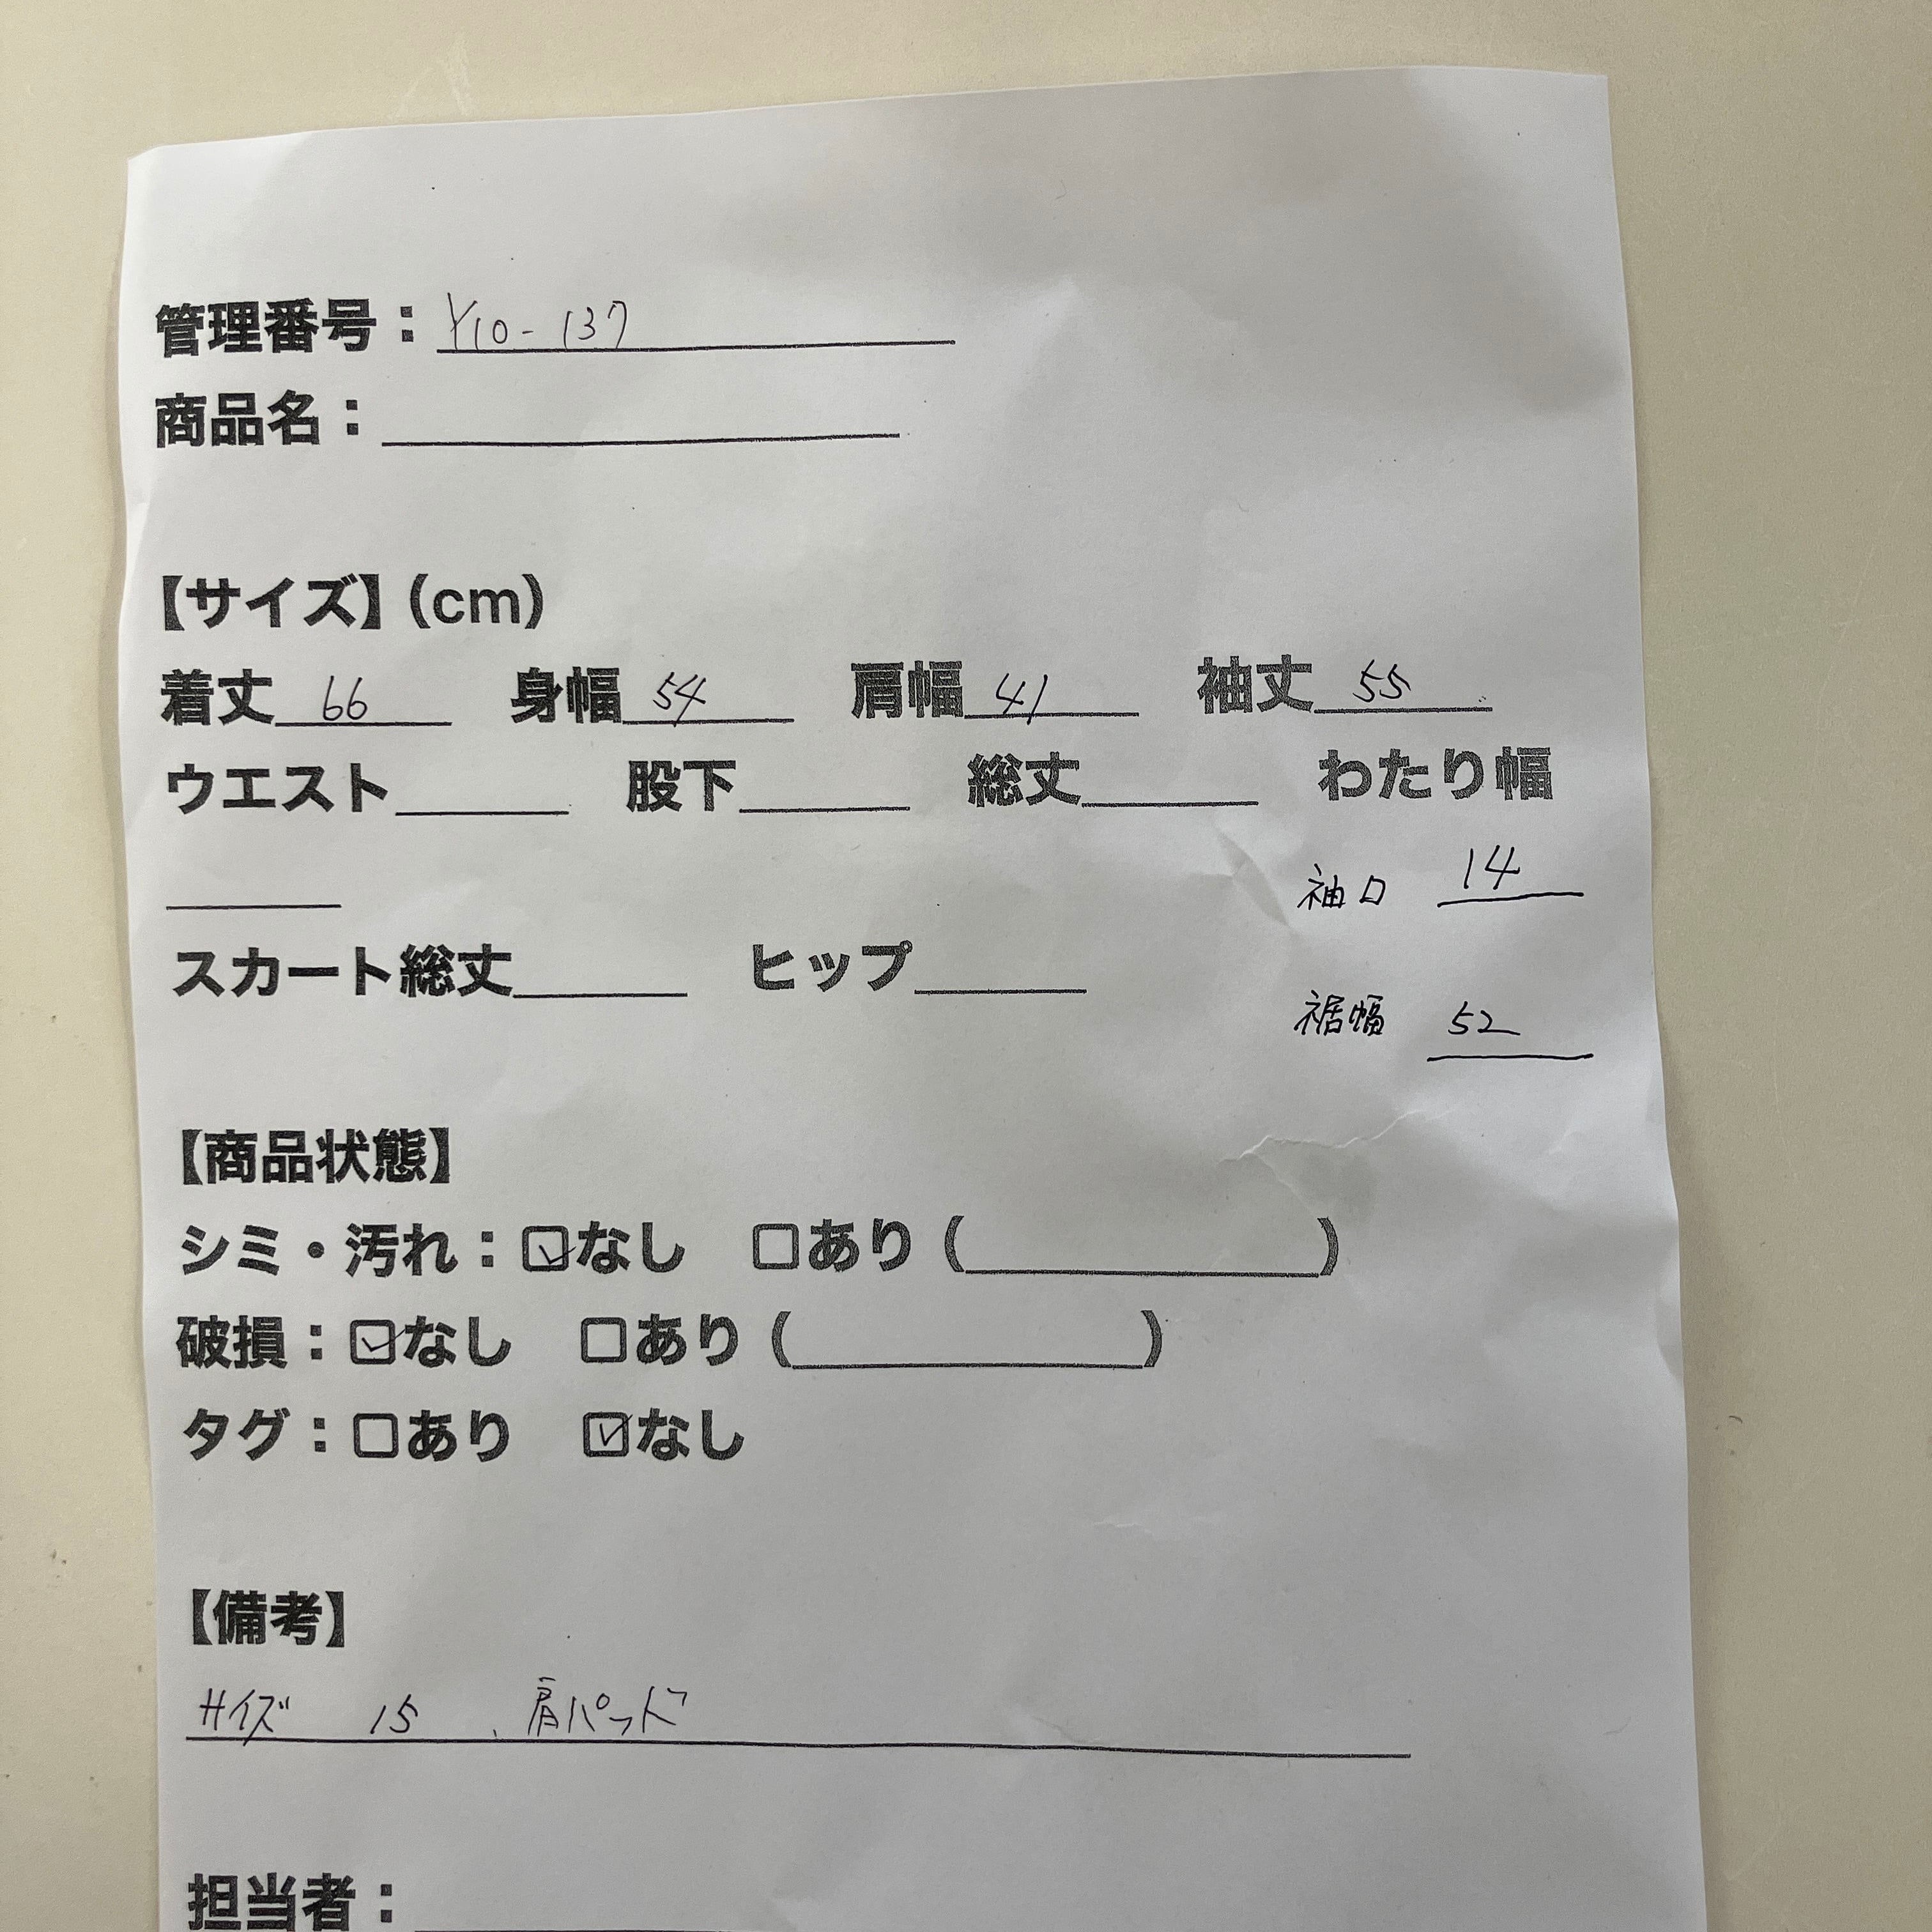 管理番号：Y10-137
商品名：
【サイズ】（cm）
着丈 66 身幅 54 肩幅 41 袖丈 55
ウエスト 股下 総丈 わたり幅
袖口 14
スカート総丈 ヒップ
裾幅 52
【商品状態】
シミ・汚れ：☑なし □あり（ ）
破損：☑なし □あり（ ）
タグ：□あり ☑なし
【備考】
サイズ 15、肩パッド
担当者：